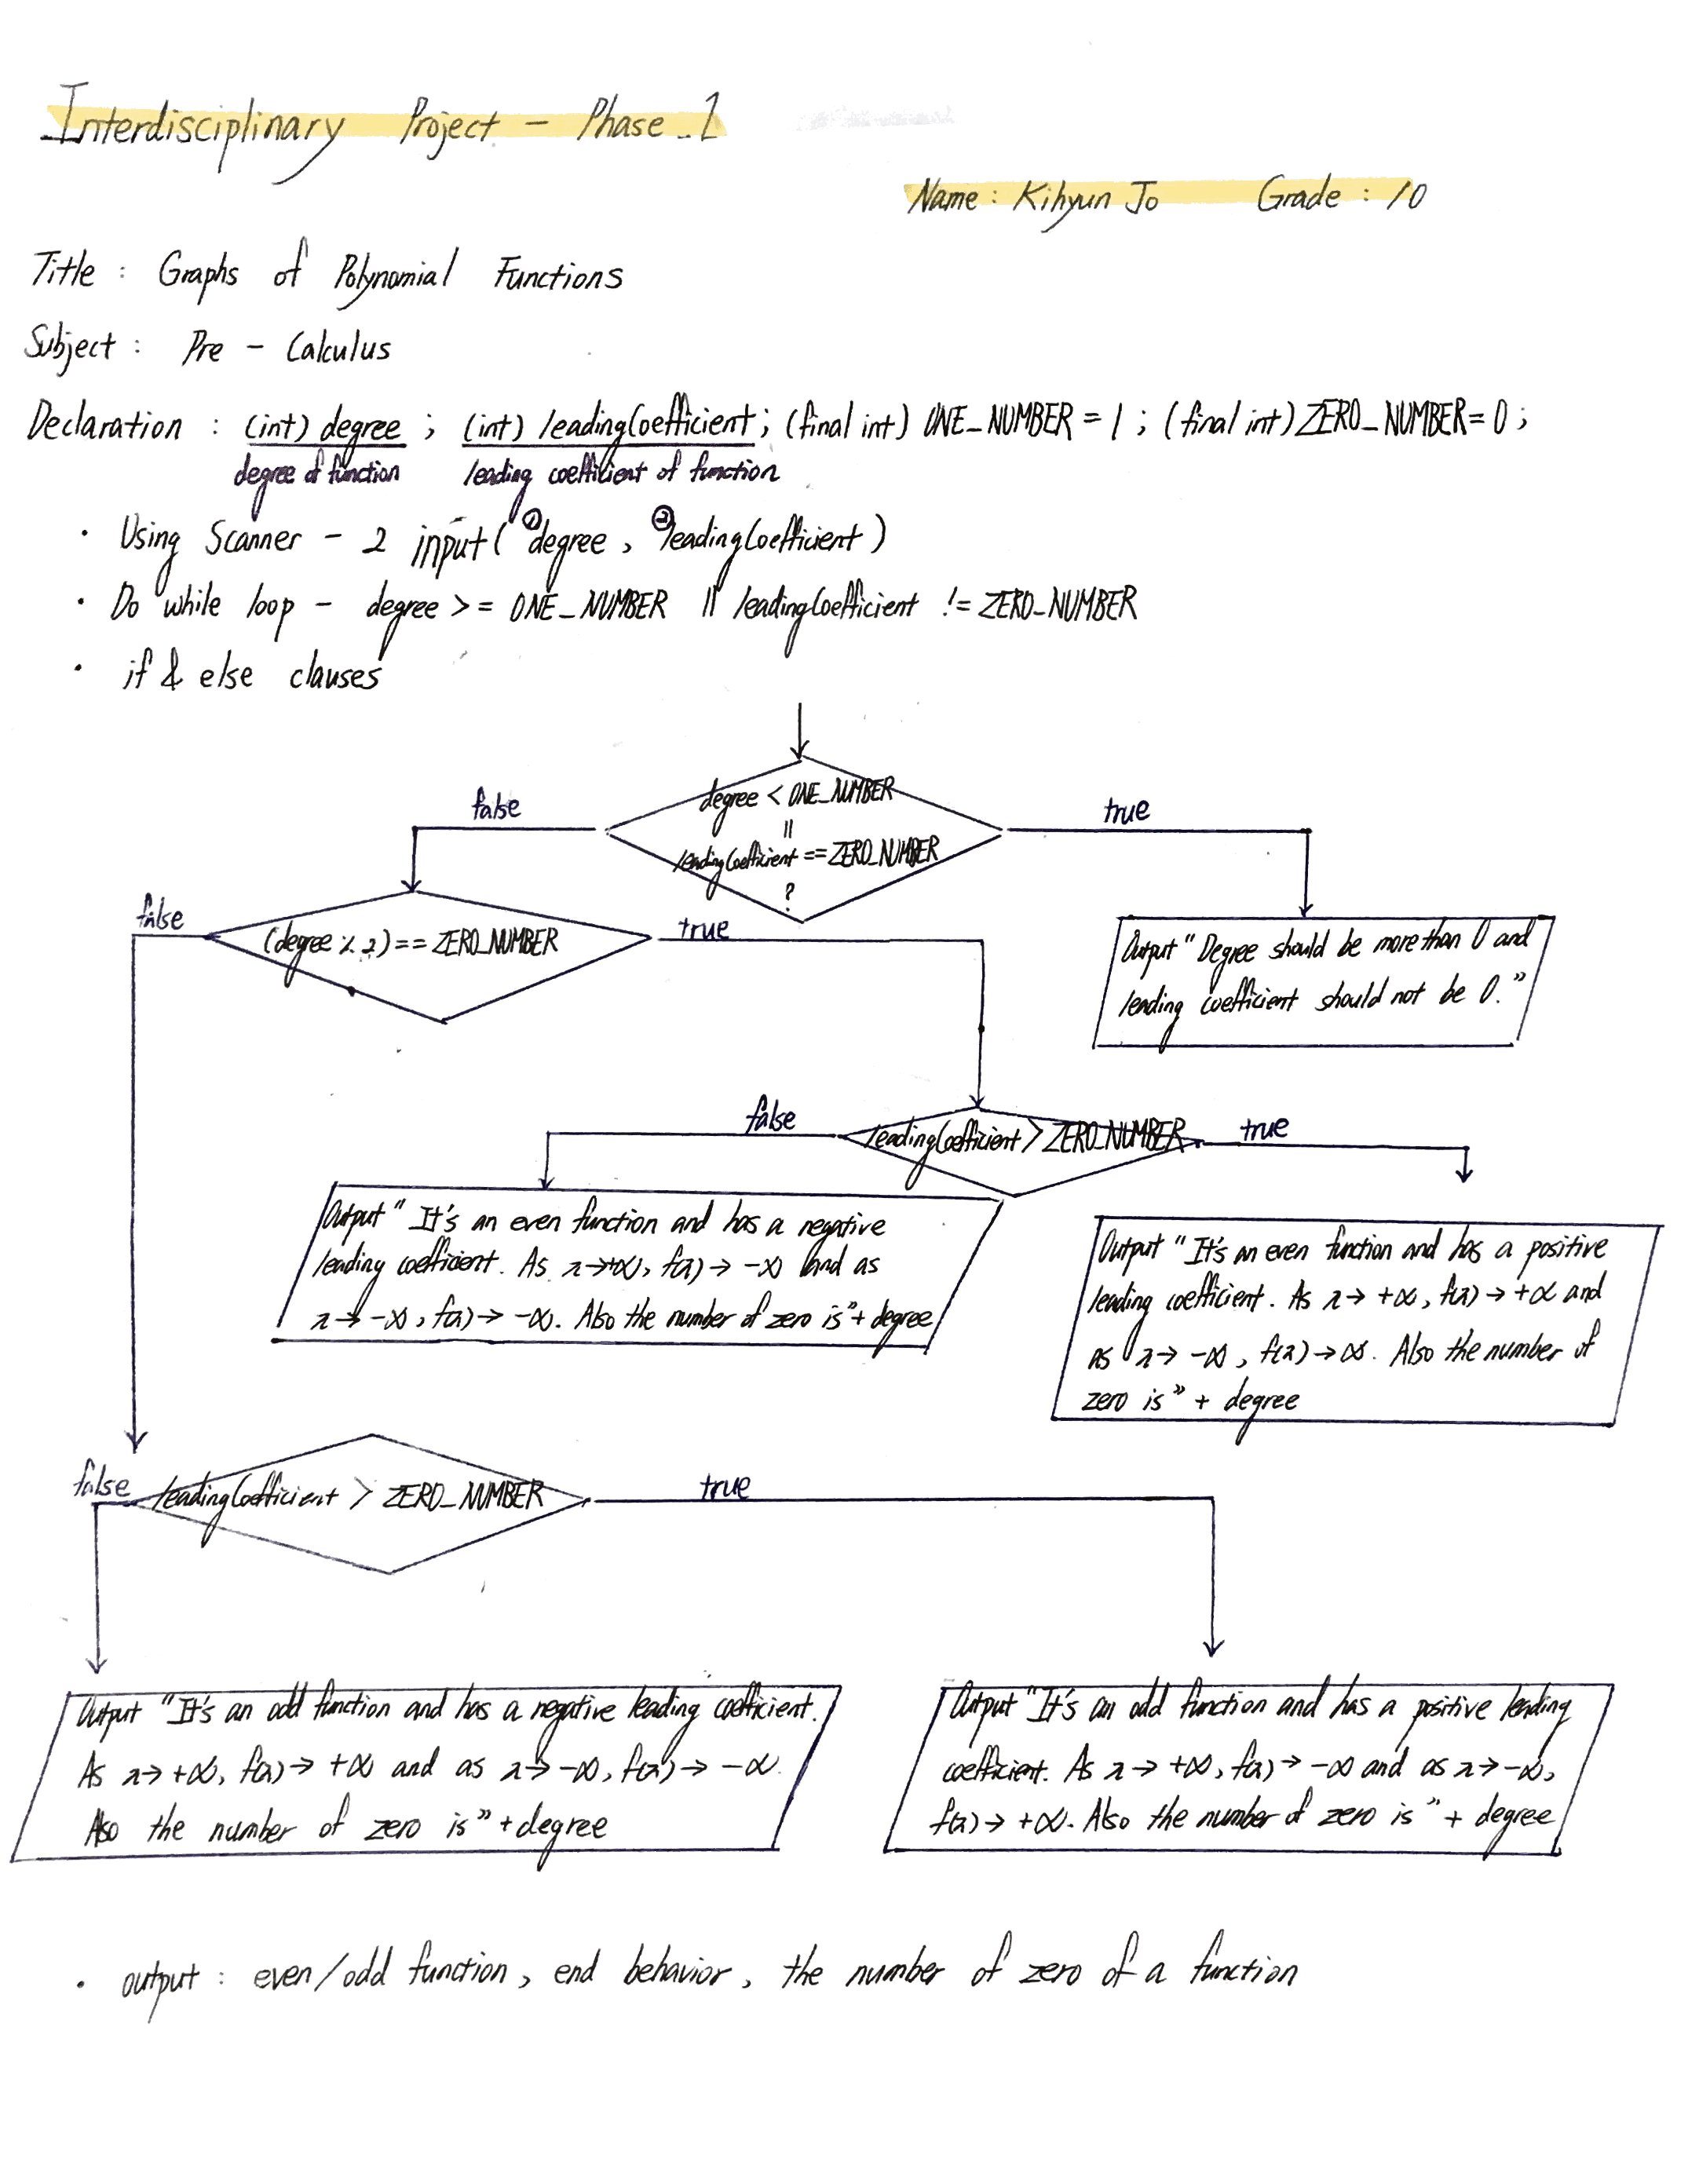 Interdisciplinary Project - Phase 1
Name : Kihyun Jo Grade : 10
Title : Graphs of Polynomial Functions
Subject : Pre - Calculus
Declaration : (int) degree ; (int) leadingCoefficient; (final int) ONE_NUMBER = 1 ; (final int) ZERO_NUMBER = 0 ;
degree of function leading coefficient of function
· Using Scanner - 2 input ( ①degree , ②leadingCoefficient )
· Do while loop - degree >= ONE_NUMBER || leadingCoefficient != ZERO_NUMBER
· if & else clauses
degree < ONE_NUMBER
||
leadingCoefficient == ZERO_NUMBER
?
false
true
false
(degree % 2) == ZERO_NUMBER
true
Output " Degree should be more than 0 and
leading coefficient should not be 0. "
false
leadingCoefficient > ZERO_NUMBER
true
Output " It's an even function and has a negative
leading coefficient. As x→+∞, f(x) → -∞ and as
x→ -∞, f(x) → -∞. Also the number of zero is" + degree
Output "It's an even function and has a positive
leading coefficient. As x→ +∞, f(x) → +∞ and
as x→ -∞, f(x) → ∞. Also the number of
zero is" + degree
false
leadingCoefficient > ZERO_NUMBER
true
Output "It's an odd function and has a negative leading coefficient.
As x→ +∞, f(x) → +∞ and as x→ -∞, f(x) → -∞.
Also the number of zero is" + degree
Output "It's an odd function and has a positive leading
coefficient. As x→ +∞, f(x) → -∞ and as x→ -∞,
f(x) → +∞. Also the number of zero is" + degree
· output : even/odd function, end behavior, the number of zero of a function